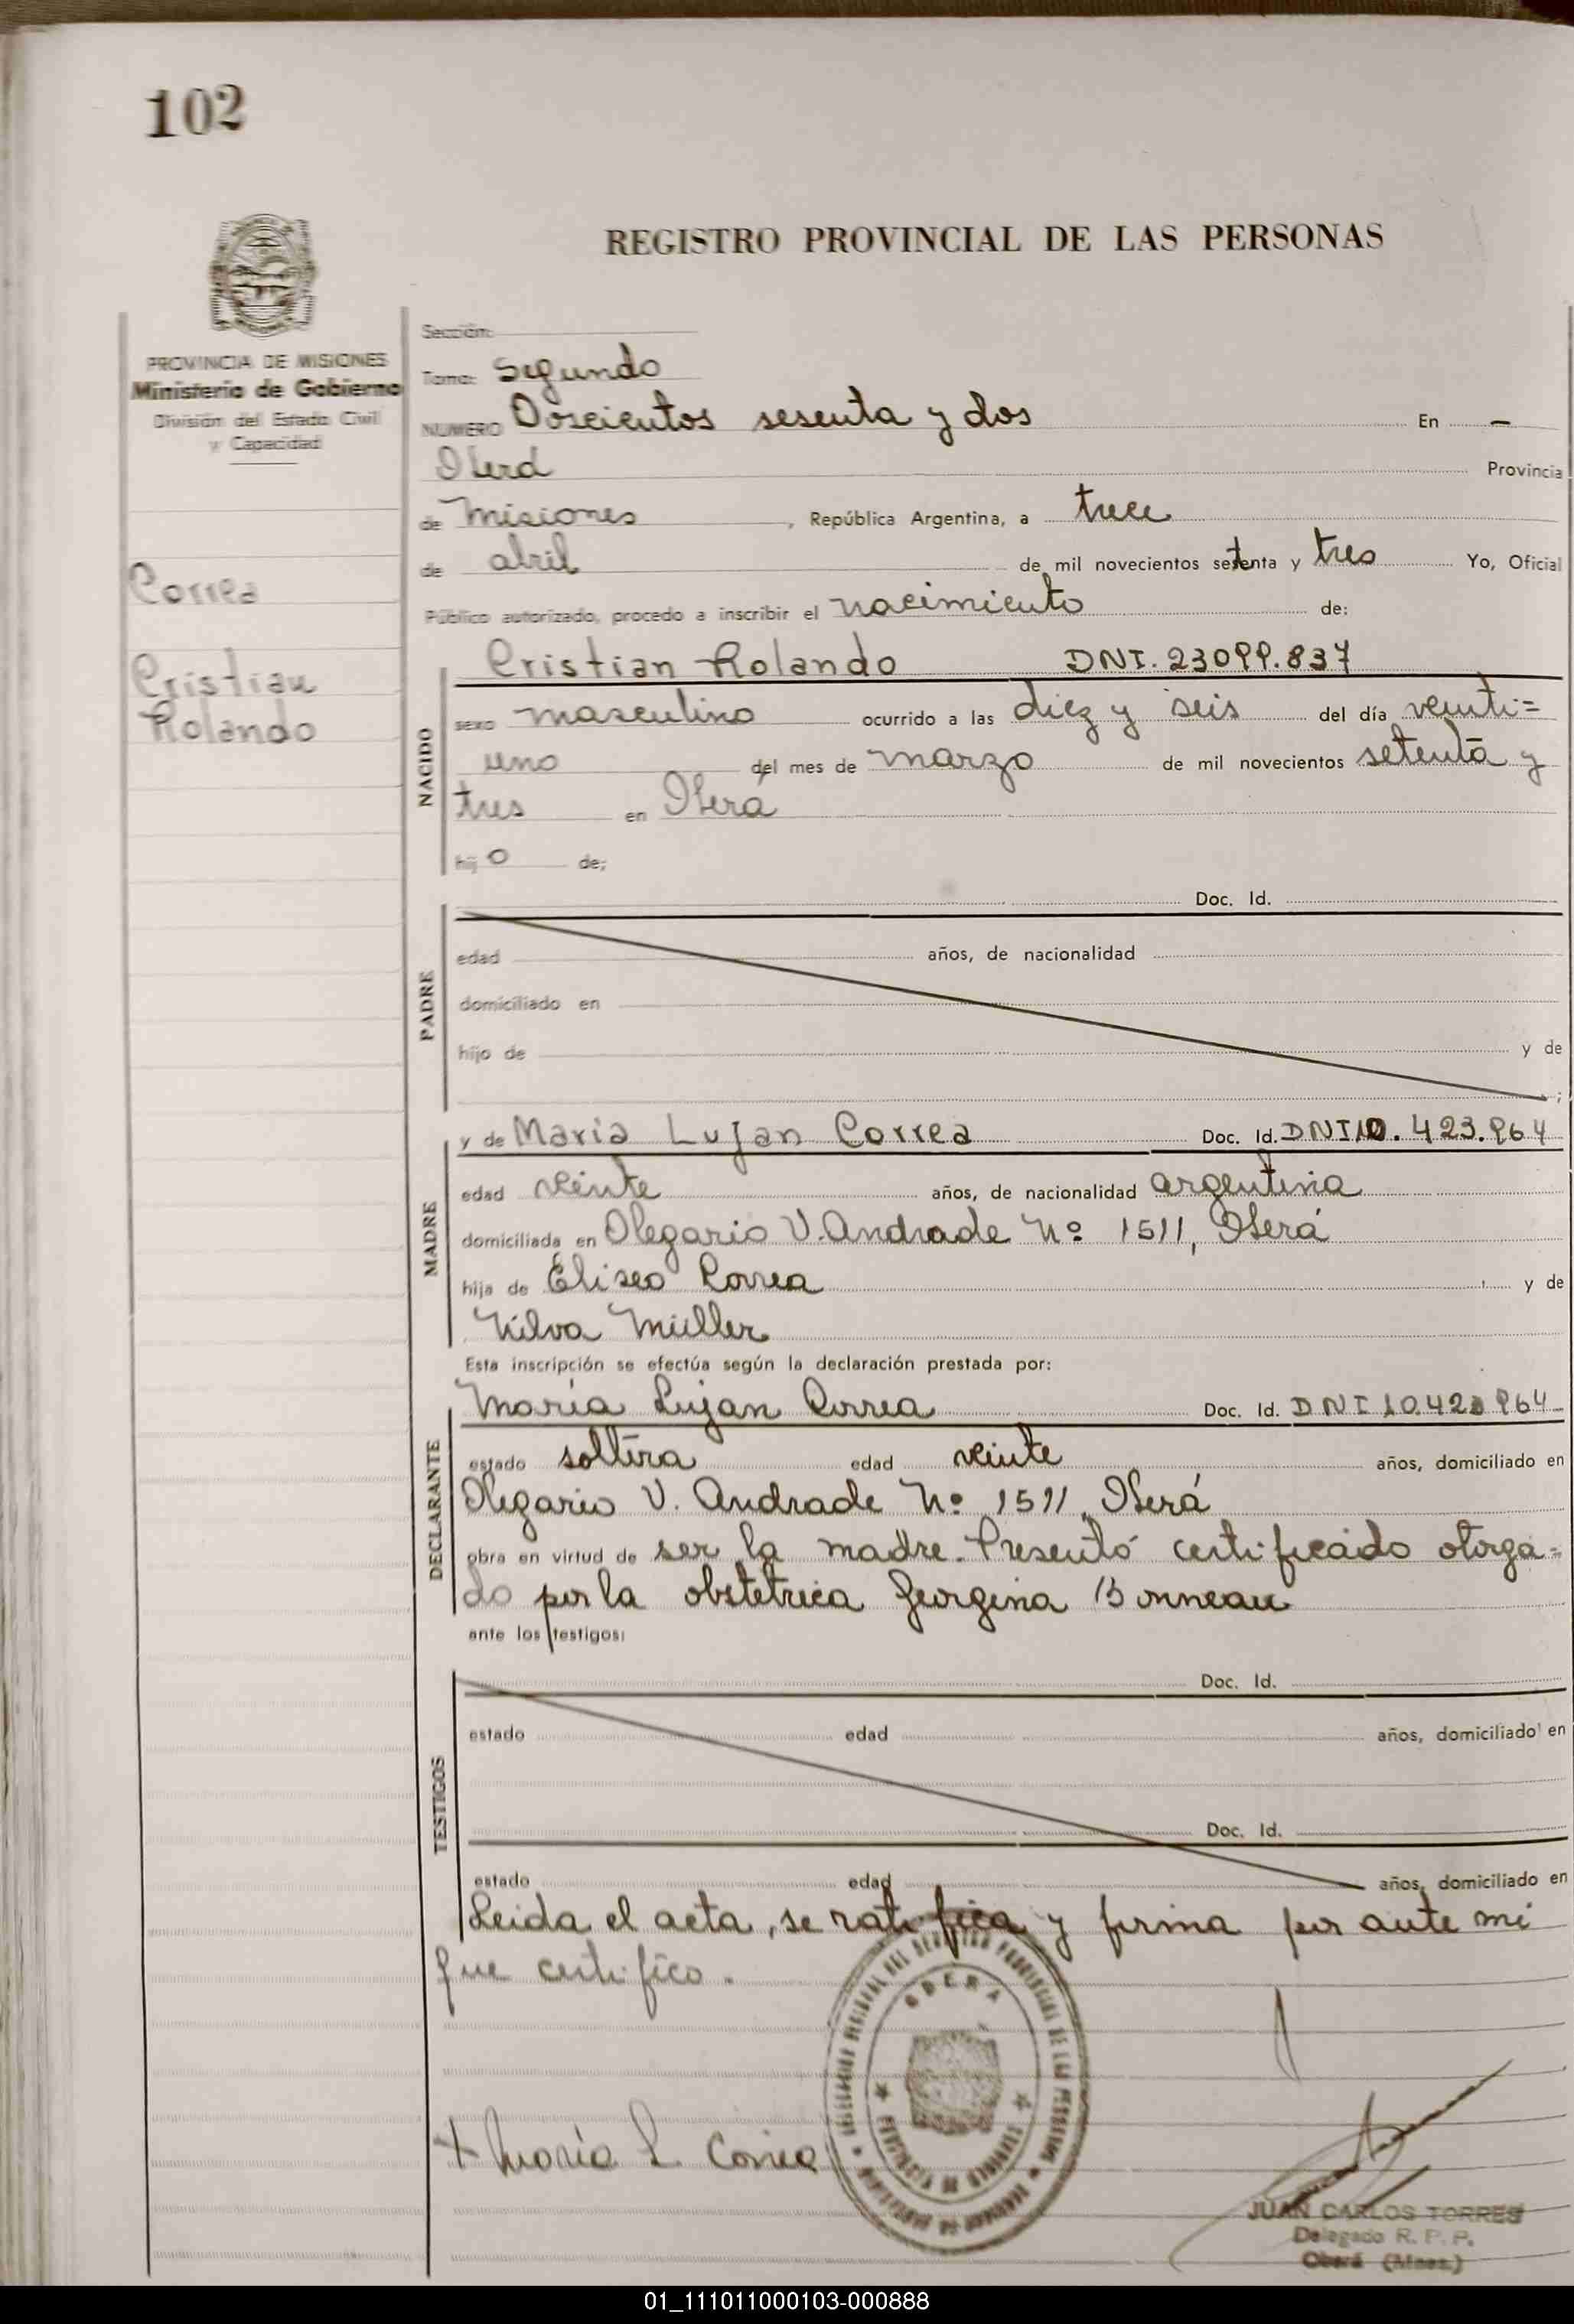 102
REGISTRO PROVINCIAL DE LAS PERSONAS
PROVINCIA DE MISIONES
Ministerio de Gobierno
División del Estado Civil
y Capacidad
Correa
Cristian
Rolando
Sección:
Tomo: Segundo
NUMERO Doscientos sesenta y dos En —
Oberá Provincia
de Misiones, República Argentina, a trece
de abril de mil novecientos setenta y tres Yo, Oficial
Público autorizado, procedo a inscribir el nacimiento de:
NACIDO
Cristian Rolando DNI. 23099.837
sexo masculino ocurrido a las diez y seis del día veinti=
uno del mes de marzo de mil novecientos setenta y
tres en Oberá
hijo de;
PADRE
Doc. Id.
edad años, de nacionalidad
domiciliado en
hijo de y de
;
MADRE
y de Maria Lujan Correa Doc. Id. DNI 10.423.964
edad veinte años, de nacionalidad argentina
domiciliada en Olegario V. Andrade Nº 1511, Oberá
hija de Eliseo Correa y de
Nilva Müller
Esta inscripción se efectúa según la declaración prestada por:
DECLARANTE
María Lujan Correa Doc. Id. DNI 10.423.964
estado soltera edad veinte años, domiciliado en
Olegario V. Andrade Nº 1511, Oberá
obra en virtud de ser la madre. Presentó certificado otorga=
do por la obstetrica Georgina Bonneau
ante los testigos:
TESTIGOS
Doc. Id.
estado edad años, domiciliado en
Doc. Id.
estado edad años, domiciliado en
Leida el acta, se ratifica y firma por ante mi
que certifico.
OBERA
PROVINCIA DE MISIONES
+ María L. Correa
JUAN CARLOS TORRES
Delegado R. P. P.
Oberá (Mnes.)
01_111011000103-000888